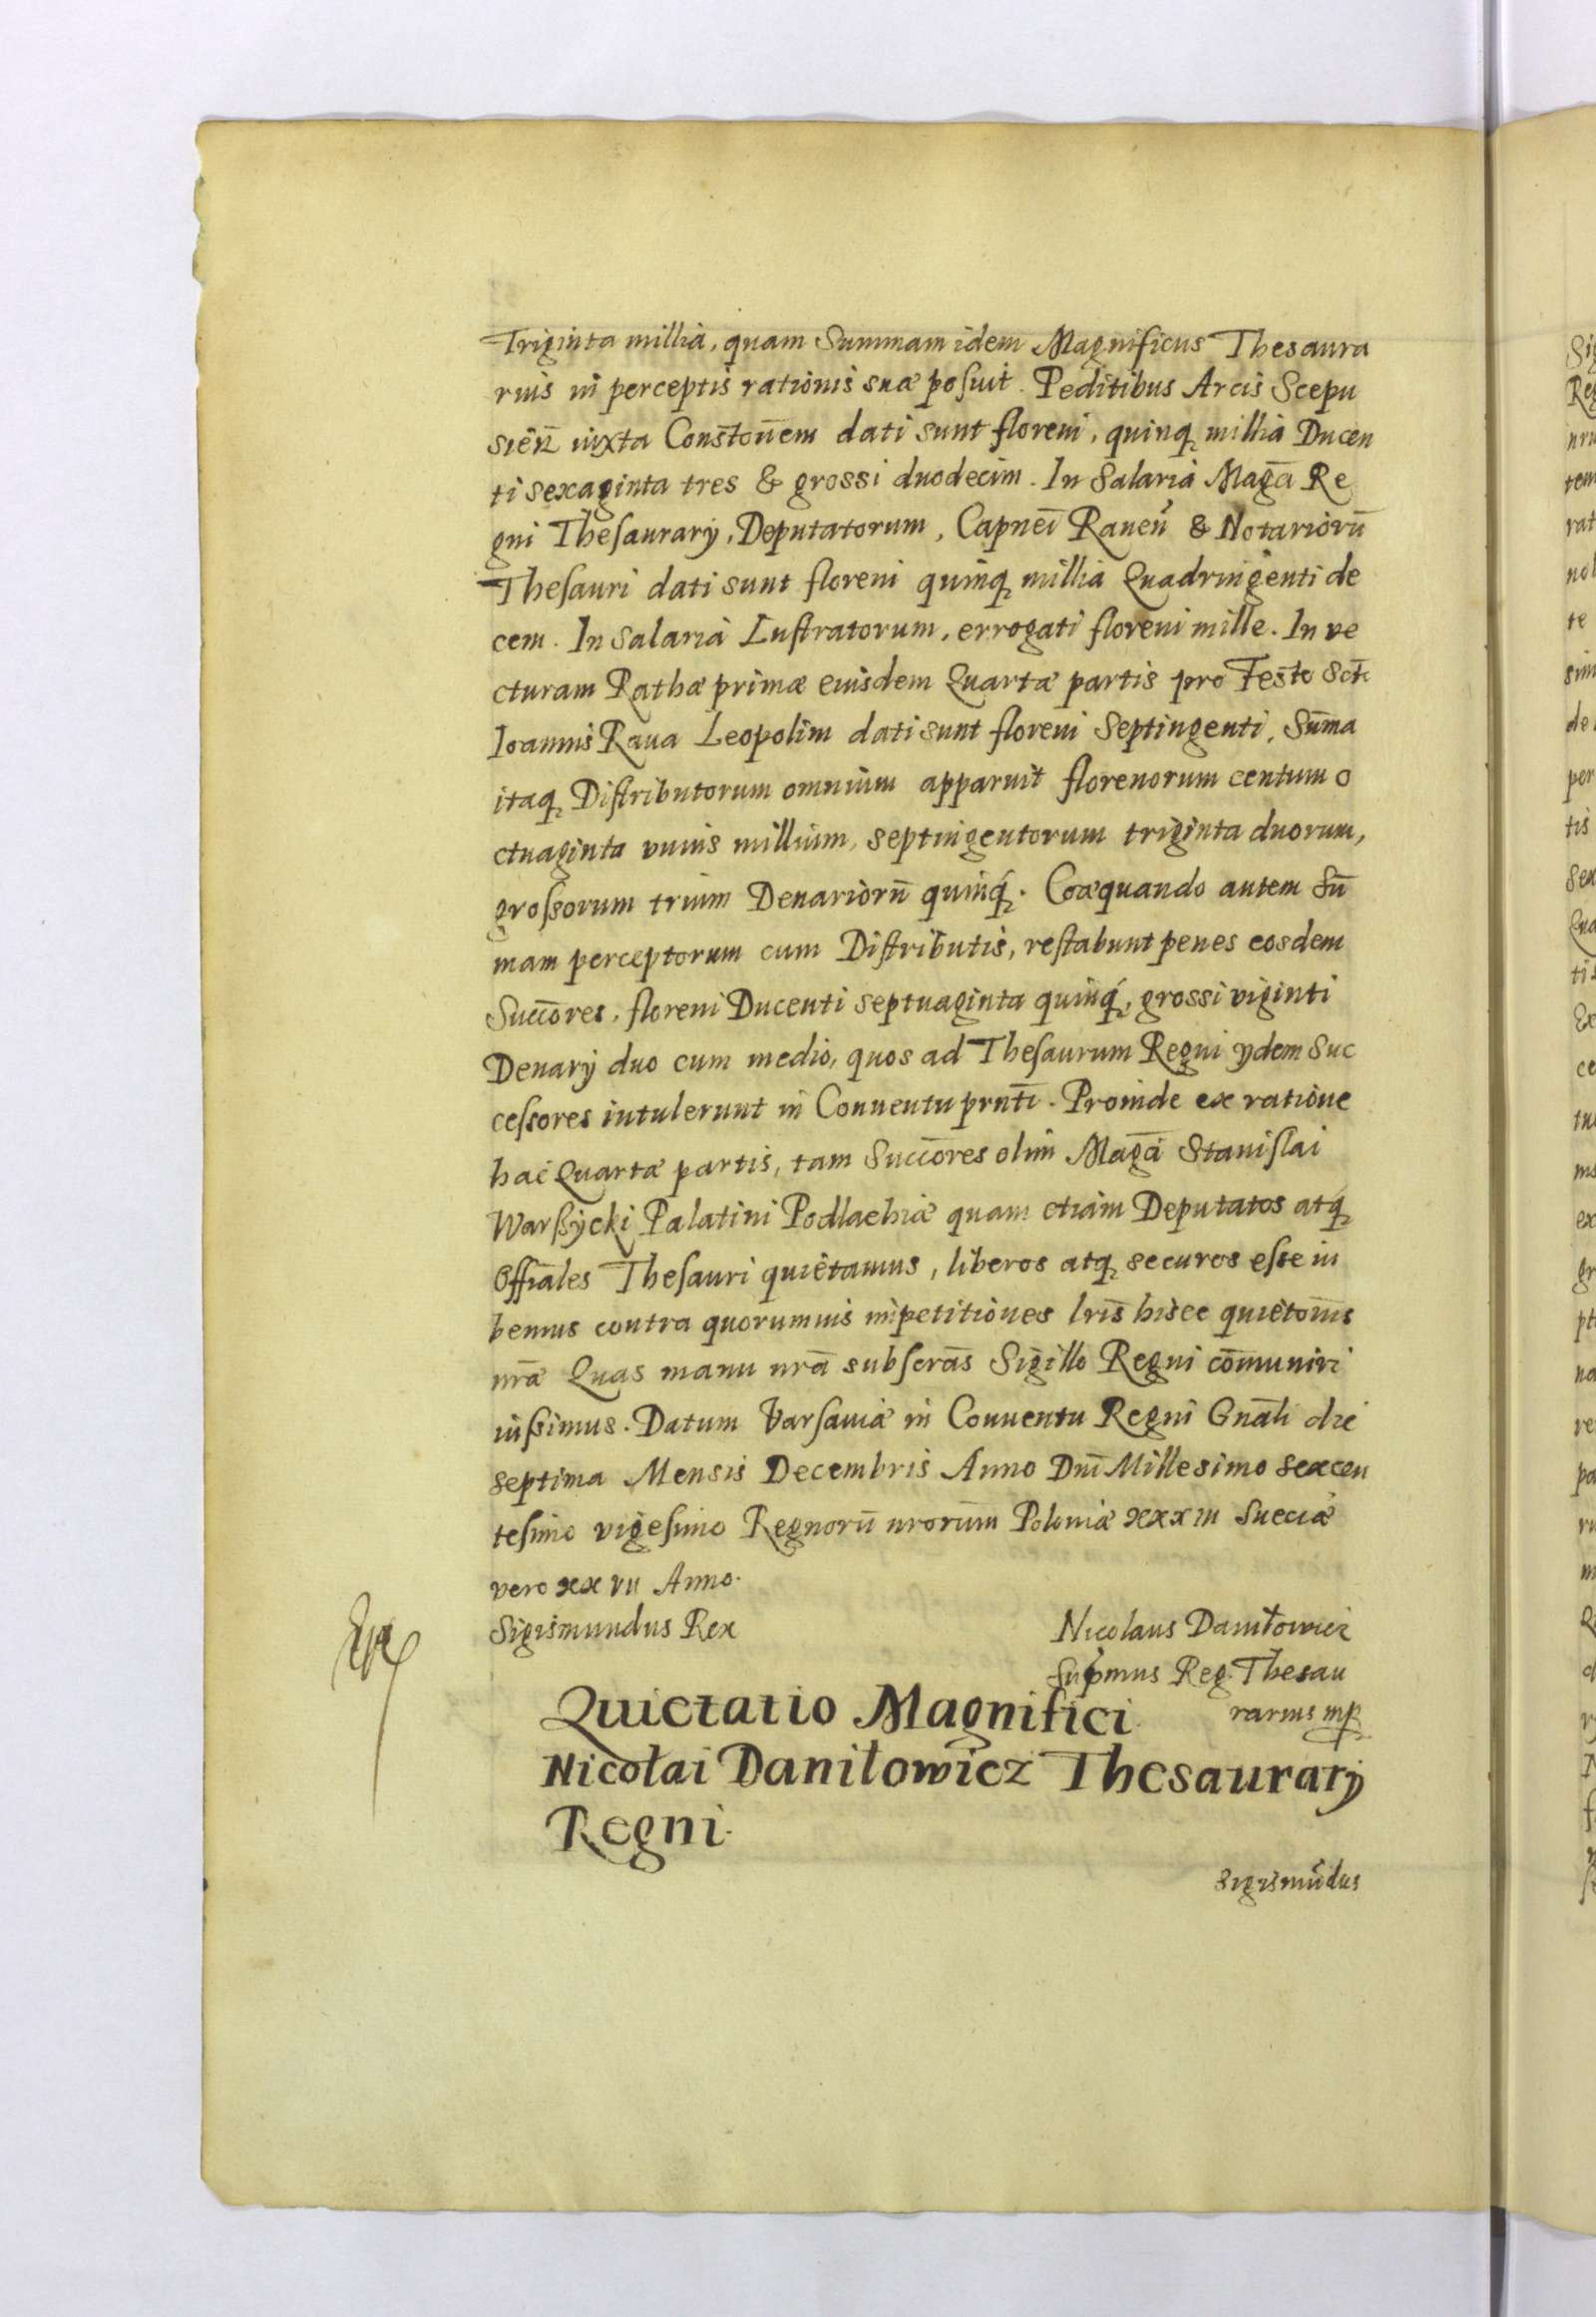 Triginta millia, quam Summam idem Magnificus Thesaura
rius in perceptis rationis suæ posuit. Peditibus Arcis Scepu
sien̄ iuxta Consto̅nem dati sunt floreni, quinq millia Ducen
ti sexaginta tres & grossi duodecim. In Salaria Magci Re
gni Thesaurarÿ, Deputatorum, Capnei Rauen̄ & Notariorū
Thesauri dati sunt floreni quinq millia Quadringenti de
cem. In Salaria Lustratorum, errogati floreni mille. In ve
cturam Rathæ primæ eiusdem Quartæ partis pro Festo Scti
Ioannis Raua Leopolim dati sunt floreni Septingenti, Sūma
itaq Distributorum omnium apparuit florenorum centum o
ctuaginta vnius millium, septingentorum triginta duorum,
grossorum trium Denariorū quinq. Coæquando autem Sū
mam perceptorum cum Distributis, restabunt penes eosdem
Succōres, floreni Ducenti septuaginta quinq, grossi viginti
Denarÿ duo cum medio, quos ad Thesaurum Regni ÿdem Suc
cessores intulerunt in Conuentu prn̄ti. Proinde ex ratione
hac Quartæ partis, tam Succōres olim Magci Stanislai
Warßÿcki Palatini Podlachiæ quam etiam Deputatos atq
Offiāles Thesauri quietamus, liberos atq securos esse iu
bemus contra quorumuis impetitiones lrīs hisce quietoīnis
nr̄æ Quas manu nrā subscrās Sigillo Regni cōmuniri
iußimus. Datum Varsauiæ in Conuentu Regni Gnāli die
septima Mensis Decembris Anno Dnī Millesimo sexcen
tesimo vigesimo Regnorū nrorūm Poloniæ xxxiii Sueciæ
vero xxvii Anno.
Sigismundus Rex
Nicolaus Daniłowicz
Supmus Reg. Thesau
rarius mp
Quietatio Magnifici
Nicolai Daniłowicz Thesaurarÿ
Regni.
Sigismūdus